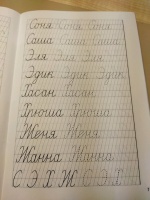 Соня Соня Соня
Саша Саша Саша
Эля Эля Эля
Эдик Эдик Эдик
Хасан Хасан
Хрюша Хрюша
Женя Женя
Жанна Жанна
С Э Х Ж С Э Х